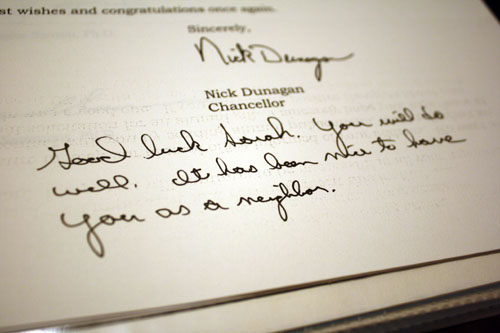 st wishes and congratulations once again.
Sincerely,
Nick Dunagan
Nick Dunagan
Chancellor
Good luck Sarah. You will do
well. It has been nice to have
you as a neighbor.